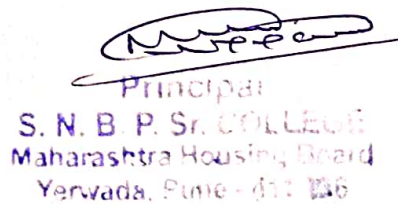 Principal
S. N. B. P. Sr. COLLEGE
Maharashtra Housing Board
Yerwada, Pune - 411